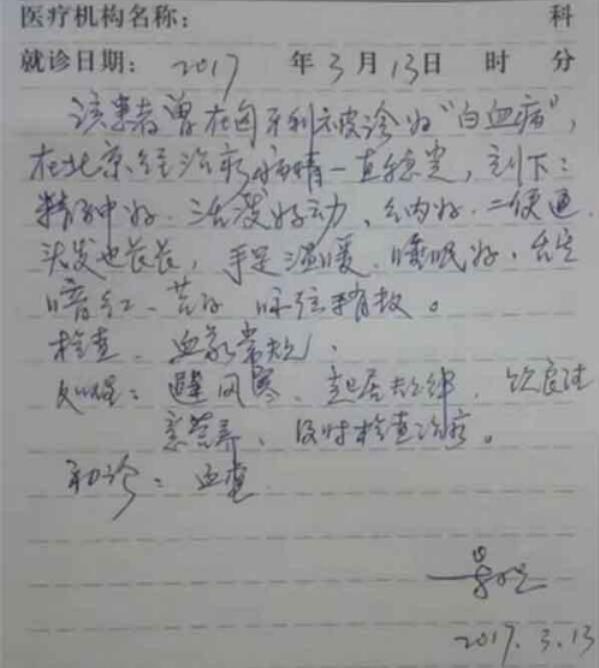 医疗机构名称: 科
就诊日期: 2017 年 3 月 13 日 时 分
该患者曾在匈牙利被诊为"白血病",
在北京经治疗病情一直稳定,刻下:
精神好.活泼好动、纳好.二便通
头发也长长,手足温暖.睡眠好.舌
暗红、苔 脉弦稍数。
检查、血象常规、
处理:避风寒、起居规律、饮食注
意营养、及时检查治疗。
初诊:
2017.3.13